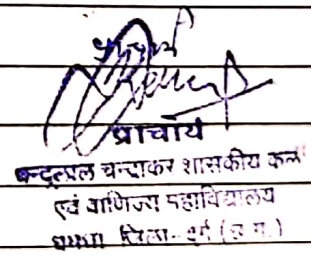 प्राचार्य
चन्दूलाल चन्द्राकर शासकीय कला
एवं वाणिज्य महाविद्यालय
धमधा जिला-दुर्ग (छ.ग.)